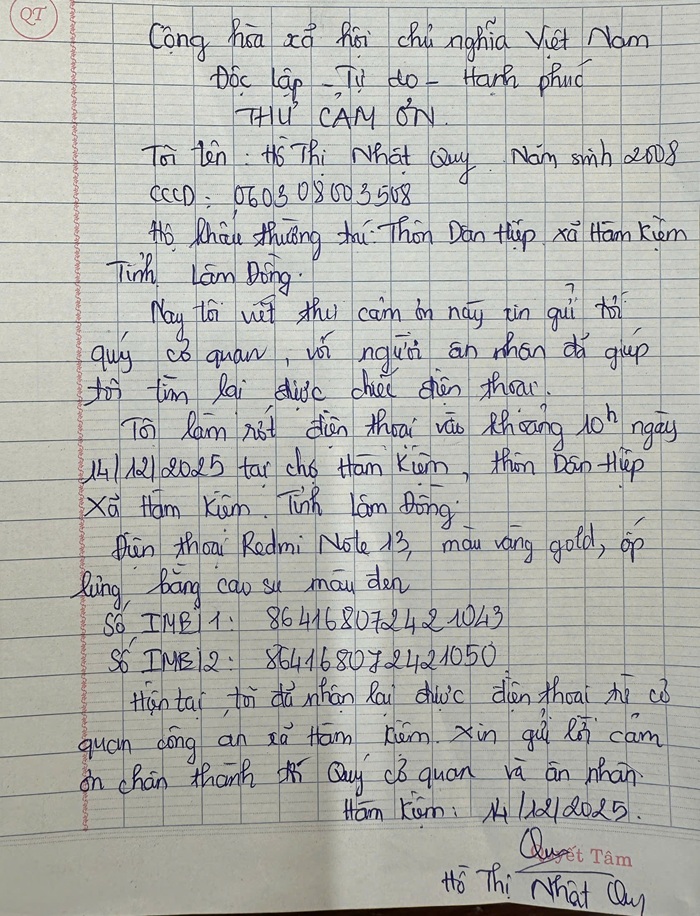 QT
Cộng hòa xã hội chủ nghĩa Việt Nam
Độc lập - Tự do - Hạnh phúc
THƯ CẢM ƠN.
Tôi tên : Hồ Thị Nhật Quy. Năm sinh 2008
CCCD : 060308003508
Hộ khẩu thường trú: Thôn Dân Hiệp, xã Hàm Kiệm
Tỉnh Lâm Đồng.
Nay tôi viết thư cảm ơn này xin gửi tới
quý cơ quan, với người ân nhân đã giúp
tôi tìm lại được chiếc điện thoại.
Tôi làm rớt điện thoại vào khoảng 10h ngày
14/12/2025 tại chợ Hàm Kiệm, thôn Dân Hiệp
Xã Hàm Kiệm. Tỉnh Lâm Đồng.
Điện thoại Redmi Note 13, màu vàng gold, ốp
lưng bằng cao su màu đen
Số IMEI 1: 864168072421043
Số IMEI 2: 864168072421050
Hiện tại, tôi đã nhận lại được điện thoại từ cơ
quan công an xã Hàm Kiệm. Xin gửi lời cảm
ơn chân thành tới Quý cơ quan và ân nhân.
Hàm Kiệm: 14/12/2025.
Quy
Quyết Tâm
Hồ Thị Nhật Quy